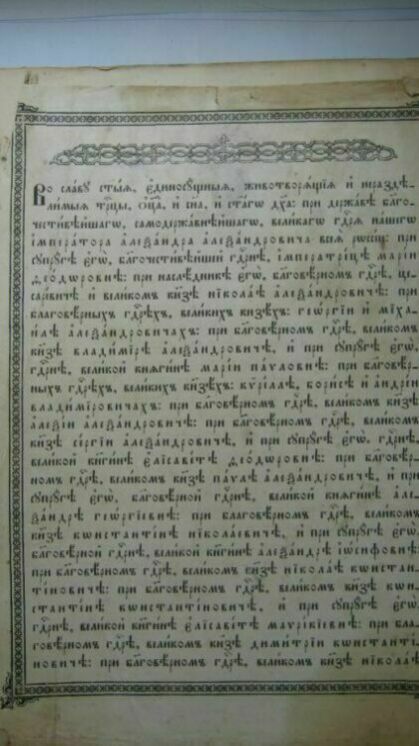 Во сла́вꙋ ст҃ы́ѧ, є҆диносꙋ́щныѧ, животворѧ́щїѧ и҆ нераздѣ́-
ли́мыѧ трⷪ҇цы, ѻ҆ц҃а̀, и҆ сн҃а, и҆ ст҃а́гѡ дх҃а: при держа́вѣ бл҃го-
чести́вѣйшагѡ, самодержа́внѣйшагѡ, вели́кагѡ гдⷭ҇рѧ на́шегѡ
і҆мпера́тора а҆леѯа́ндра а҆леѯа́ндровича всеѧ̀ рѡссі́и: при
сꙋпрꙋ́гѣ є҆гѡ̀, бл҃гочести́вѣйшей гдⷭ҇рнѣ, і҆мператри́цѣ марі́и
ѳео́дѡровнѣ: при наслѣ́дникѣ є҆гѡ̀, бл҃говѣ́рномъ гдⷭ҇рѣ, це-
саре́вичѣ и҆ вели́комъ кн҃зѣ нікола́ѣ а҆леѯа́ндровичѣ: при
благовѣ́рныхъ гдⷭ҇рѣхъ, вели́кихъ кнѧзѣ́хъ: геѡ́ргїи и҆ міха-
и́лѣ а҆леѯа́ндровичахъ: при бл҃говѣ́рномъ гдⷭ҇рѣ, вели́комъ
кн҃зѣ влади́мірѣ а҆леѯа́ндровичѣ, и҆ при сꙋпрꙋ́гѣ є҆гѡ̀,
гдⷭ҇рнѣ, вели́кой кнѧги́нѣ марі́и па́ѵловнѣ: при бл҃говѣ́р-
ныхъ гдⷭ҇рѣхъ, вели́кихъ кнѧзѣ́хъ: кѷрі́ллѣ, бори́сѣ и҆ а҆ндре́и
влади́міровичахъ: при бл҃говѣ́рномъ гдⷭ҇рѣ, вели́комъ кн҃зѣ
а҆леѯі́и а҆леѯа́ндровичѣ: при бл҃говѣ́рномъ гдⷭ҇рѣ, вели́комъ
кн҃зѣ се́ргїи а҆леѯа́ндровичѣ, и҆ при сꙋпрꙋ́гѣ є҆гѡ̀, гдⷭ҇рнѣ,
вели́кой кнѧги́нѣ є҆лїсаве́тѣ ѳео́дѡровнѣ: при бл҃говѣ́р-
номъ гдⷭ҇рѣ, вели́комъ кн҃зѣ па́ѵлѣ а҆леѯа́ндровичѣ, и҆ при
сꙋпрꙋ́гѣ є҆гѡ̀, бл҃говѣ́рной гдⷭ҇рнѣ, вели́кой кнѧги́нѣ а҆ле-
ѯа́ндрѣ геѡ́ргїевнѣ: при благовѣ́рномъ гдⷭ҇рѣ, вели́комъ
кн҃зѣ кѡнстанті́нѣ нікола́евичѣ, и҆ при сꙋпрꙋ́гѣ є҆гѡ̀,
бл҃говѣ́рной гдⷭ҇рнѣ, вели́кой кнѧги́нѣ а҆леѯа́ндрѣ і҆ѡ́сифовнѣ:
при бл҃говѣ́рномъ гдⷭ҇рѣ, вели́комъ кн҃зѣ нікола́ѣ кѡнстан-
ті́новичѣ: при бл҃говѣ́рномъ гдⷭ҇рѣ, вели́комъ кн҃зѣ кѡн-
станті́нѣ кѡнстанті́новичѣ, и҆ при сꙋпрꙋ́гѣ є҆гѡ̀
гдⷭ҇рнѣ, вели́кой кнѧги́нѣ є҆лїсаве́тѣ маѵрикі́евнѣ: при бла-
говѣ́рномъ гдⷭ҇рѣ, вели́комъ кн҃зѣ дими́трїи кѡнстанті-
новичѣ: при благовѣ́рномъ гдⷭ҇рѣ, вели́комъ кн҃зѣ нікола́ѣ